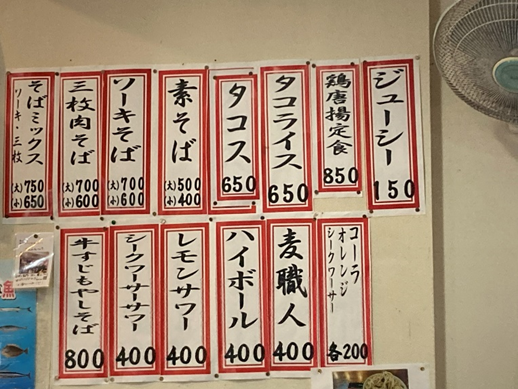 ジューシー
150
鶏唐揚定食
850
タコライス
650
タコス
650
素そば
(大)500
(小)400
ソーキそば
(大)700
(小)600
三枚肉そば
(大)700
(小)600
そばミックス
ソーキ・三枚
(大)750
(小)650
コーラ
オレンジ
シークワーサー
各200
麦職人
400
ハイボール
400
レモンサワー
400
シークワーサーサワー
400
牛すじもやしそば
800